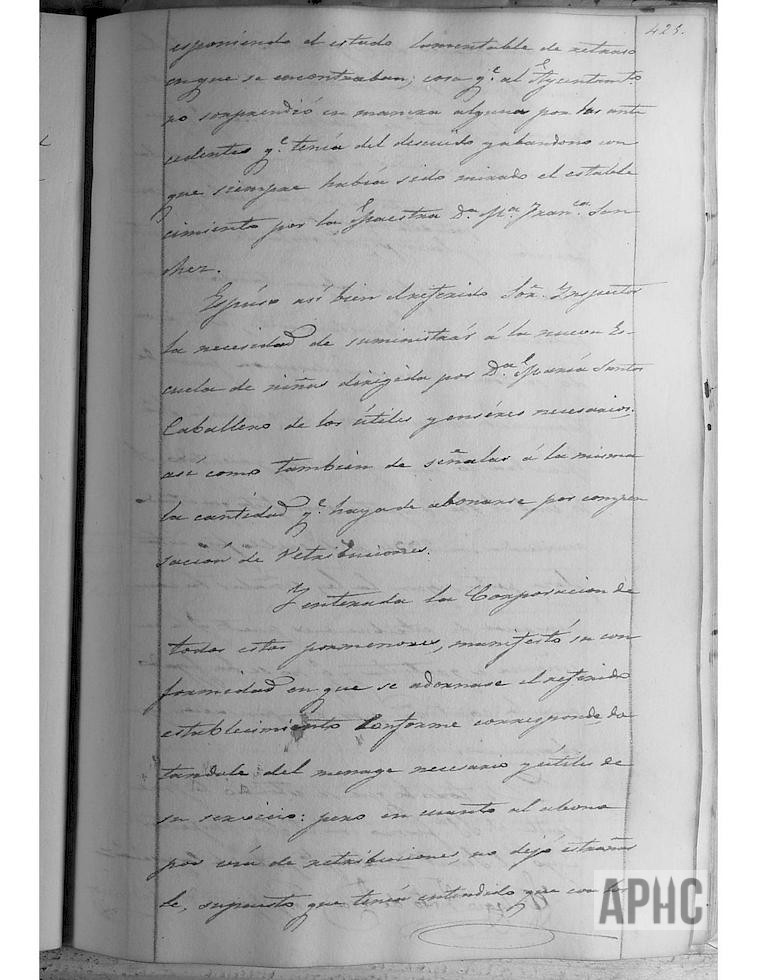 425.
esponiendo el estado lamentable de retraso
en que se encontraban; cosa q.e al Ayuntamto
no sorprendió en manera alguna por los ante
cedentes q.e tenía del descuido y abandono con
que siempre había sido mirado el estable
cimiento por la Maestra D.a M.a Fran.ca San
chez.
Espúso así bien el referido Sôr. Inspector
la necesidad de suministrar á la nueva Es-
cuela de niñas dirigida por D.a María Santos
Caballero de los útiles y enséres necesarios,
así como tambien de señalar á la misma
la cantidad q.e haya de abonarse por compen
sación de retribuciones.
Y enterada la Corporacion de
todos estos pormenores, manifestó su con
formidad en que se adornase el referido
establecimiento conforme corresponde, do
tandole del menage necesario y útiles de
su servicio: pero en cuanto al abono
por vía de retribuciones, no dejó estrañar
le, supuesto que tenía entendido que con los
APHC